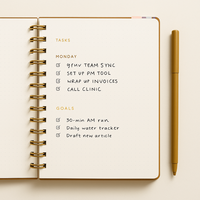 TASKS
MONDAY
TEAM SYNC
SET UP PM TOOL
WRAP UP INVOICES
CALL CLINIC
GOALS
30-min AM run
Daily water tracker
Draft new article